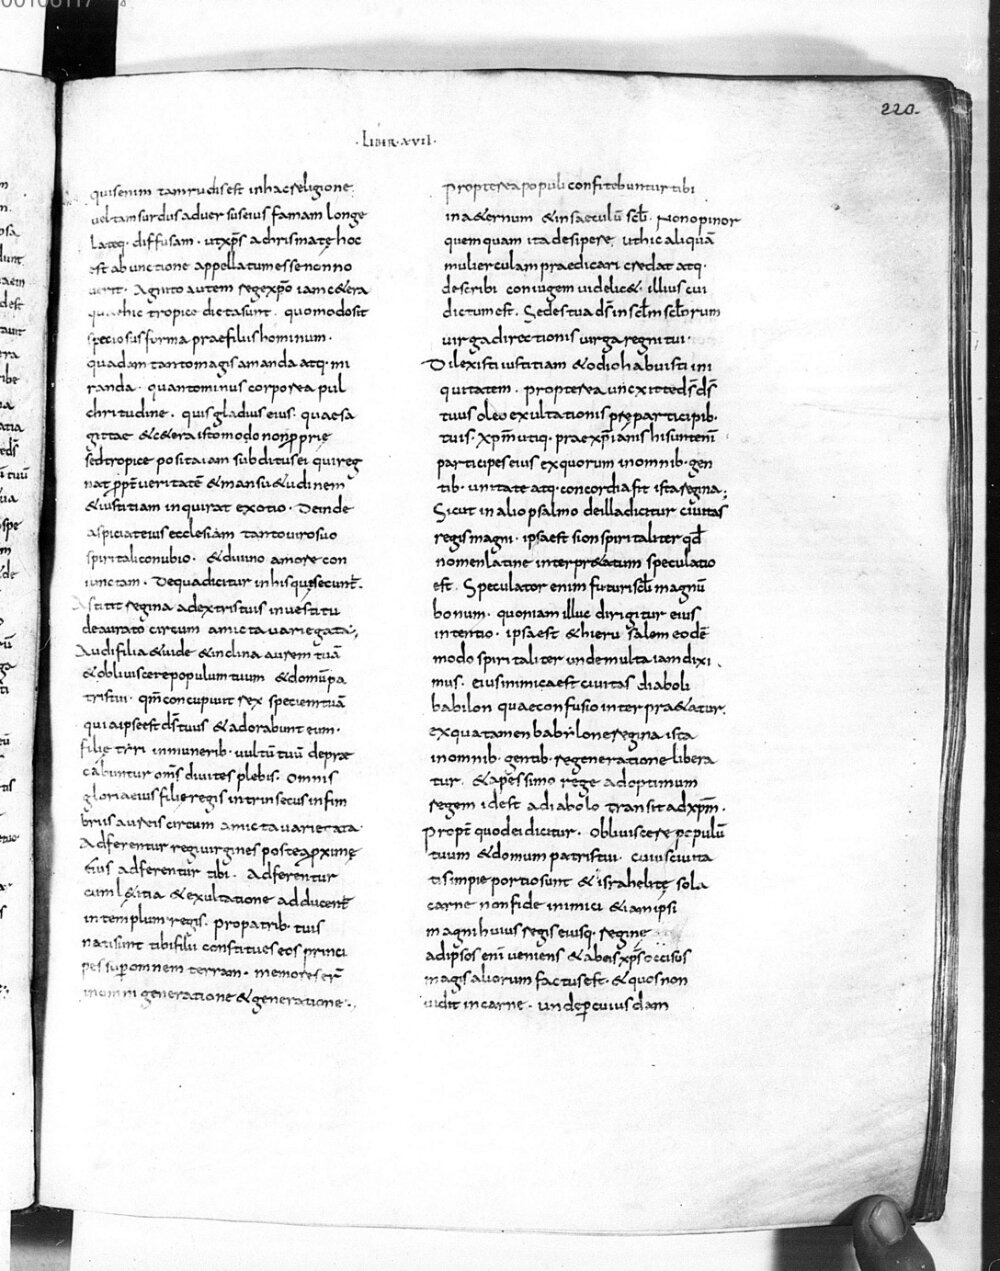 220.
·LIBER·XVII·
quis enim tam rudis est in hac religione.
vel tam surdus adversus eius famam longe
lateq· diffusam· ut xp̄s a chrismate hoc
est ab unctione appellatum esse non no
verit· Agnito autem rege xp̄o iam cetera
quae hic tropice dicta sunt· quomodo sit
speciosus forma prae filiis hominum·
quadam tanto magis amanda atq· mi
randa· quanto minus corporea pul
chritudine· quis gladius eius· quae sa
gittae & cetera isto modo non pprie
sed tropice posita iam subditus ei qui reg
nat ppt veritatē & mansu&udinem
& iustitiam inquirat ex otio· Deinde
aspiciat eius ecclesiam tanto viro suo
spiritali conubio· & divino amore con
iunctam· De qua dicitur in his quę secunt̄·
Astitit regina a dextris tuis in vestitu
deaurato circum amicta variegata;
Audi filia & vide & inclina aurem tuā
& obliviscere populum tuum & domū pa
tris tui· qm̄ concupivit rex speciem tuā
quia ipse est ds̄ tuus & adorabunt eum·
filię tyri in munerib· vultū tuū depræ
cabuntur om̄s divites plebis· Omnis
gloria eius filię regis intrinsecus in fim
briis aureis circum amicta varietata·
Adferentur regi virgines post eā pximę
Eius adferentur tibi· Adferentur
cum l&itia & exultatione adducent̄
in templum regis· Pro patrib· tuis
nati sunt tibi filii constitues eos princi
pes sup omnem terram· memores er̄
in omni generatione & generatione·,
Propterea populi confitebuntur tibi
in &ernum & in saeculū sc̄li· Non opinor
quemquam ita desipere, ut hic aliquā
mulierculam praedicari credat atq·
describi· coniugem videlic& illius cui
dictum est· Sedes tua ds̄ in sc̄lm sc̄lorum
virga directionis virga regni tui·
Dilexisti iustitiam & odio habuisti ini
quitatem· propterea unxit te ds̄ ds̄
tuus oleo exultationis pre particip̄ib·
tuis· xp̄m utiq· prae xp̄ianis hi sunt enī
participes eius ex quorum in omnib· gen
tib· unitate atq· concordia fit ista regina;
Sicut in alio psalmo de illa dicitur civitas
regis magni· ipsa est sion spiritaliter qd̄
nomen latine interpr&atum speculatio
est· Speculator enim futuri sc̄li magnū
bonum· quoniam illuc dirigitur eius
intentio· ipsa est & hierusalem eodē
modo spiritaliter unde multa iam dixi
mus· eius inimica est civitas diaboli
babilon quae confusio interpr&atur·
ex qua tamen babylone regina ista
in omnib· gentib· regeneratione libera
tur· & a pessimo rege ad optimum
regem id est a diabolo transit ad xp̄m·
Propt̄ quod ei dicitur· Obliviscere populū
tuum & domum patris tui· cuius civita
tis impie portio sunt & israhelitę sola
carne non fide inimici & iam ipsi
magni huius regis eiusq· reginę
ad ipsos enī veniens & ab eis xp̄s occisus
magis aliorum factus est· & quos non
vidit in carne· unde p cuiusdam